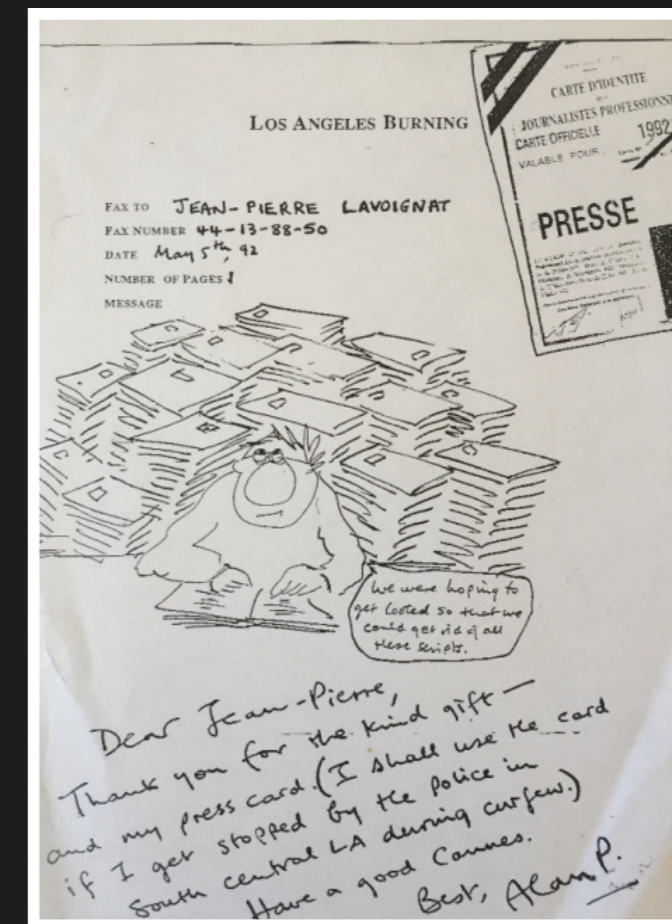 LOS ANGELES BURNING
CARTE D'IDENTITE
JOURNALISTES PROFESSIONN
CARTE OFFICIELLE 1992
VALABLE POUR
PRESSE
FAX TO JEAN-PIERRE LAVOIGNAT
FAX NUMBER 44-13-88-50
DATE May 5th, 92
NUMBER OF PAGES 1
MESSAGE
We were hoping to
get looted so that we
could get rid of all
these scripts.
Dear Jean-Pierre,
Thank you for the kind gift —
and my press card. (I shall use the card
if I get stopped by the police in
south central LA during curfew.)
Have a good Cannes.
Best, Alan P.